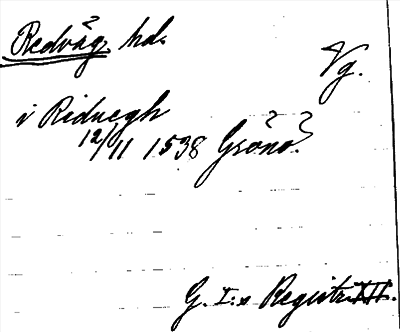 Redväg hd.
Vg.
i Riduegh
12/11 1538 Gsöno.
G. I:s Registr. XII.